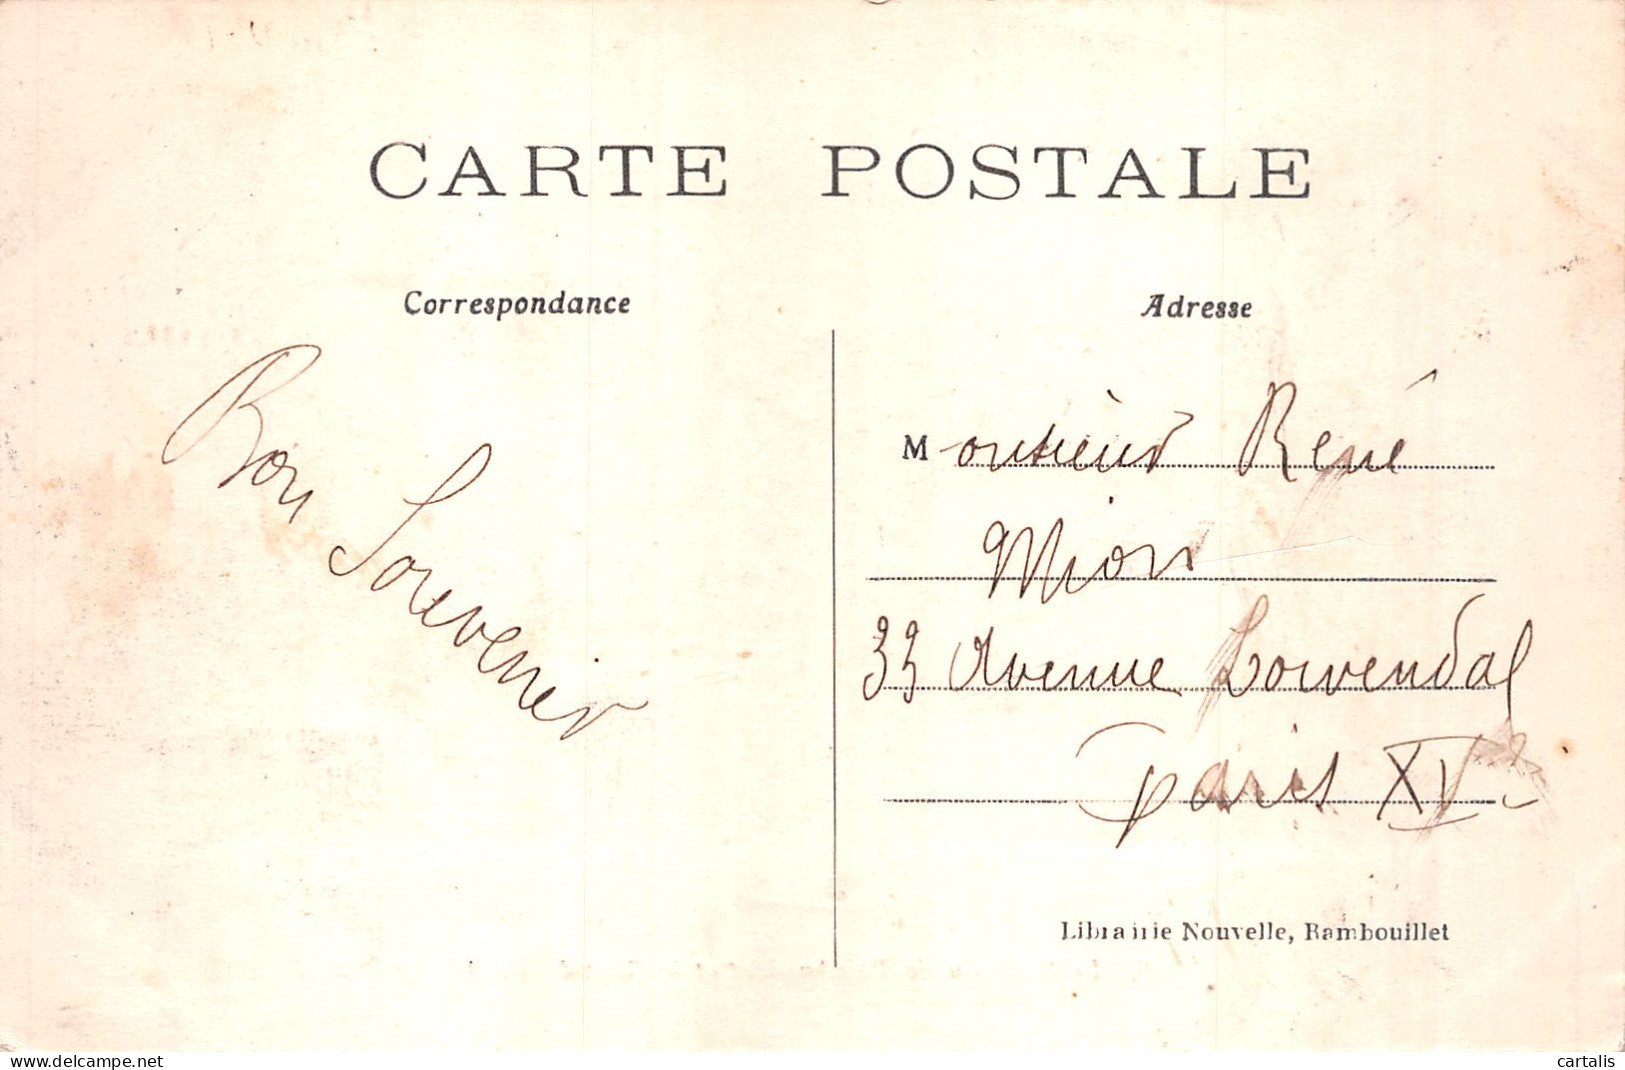 CARTE POSTALE
Correspondance
Bon Souvenir
Adresse
Monsieur René
Mion
33 Avenue Lowendal
Paris XVe
Librairie Nouvelle, Rambouillet
www.delcampe.net
cartalis